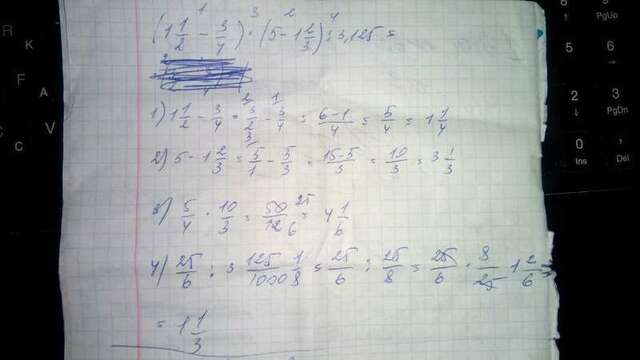 1 3 2 4
(1 1/2 - 3/4) · (5 - 1 2/3) : 3,125 =
1) 1 1/2 - 3/4 = 3/2 - 3/4 = 6-1/4 = 5/4 = 1 1/4
2) 5 - 1 2/3 = 5/1 - 5/3 = 15-5/3 = 10/3 = 3 1/3
3) 5/4 · 10/3 = 50/12 = 25/6 = 4 1/6
4) 25/6 : 3 125/1000 1/8 = 25/6 : 25/8 = 25/6 · 8/25 = 1 2/6 =
= 1 1/3
8
2
3
9
PgUp
PgDn
0
Ins
.
Del